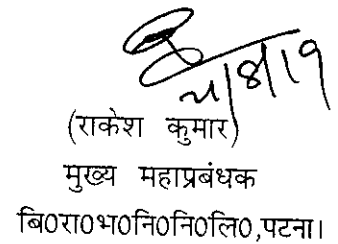 (राकेश कुमार)
मुख्य महाप्रबंधक
बि०रा०भ०नि०नि०लि०,पटना।